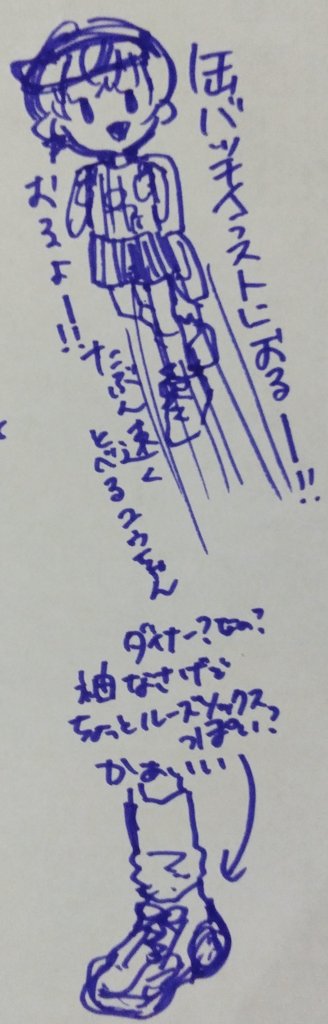 缶バッチもストレおるー!!
おるよー!!
たぶん速く
とべるユウちゃん
ダイナー?なの?
袖なさげで
ちょっとルーズソックス
っぽい?
かぁいいい